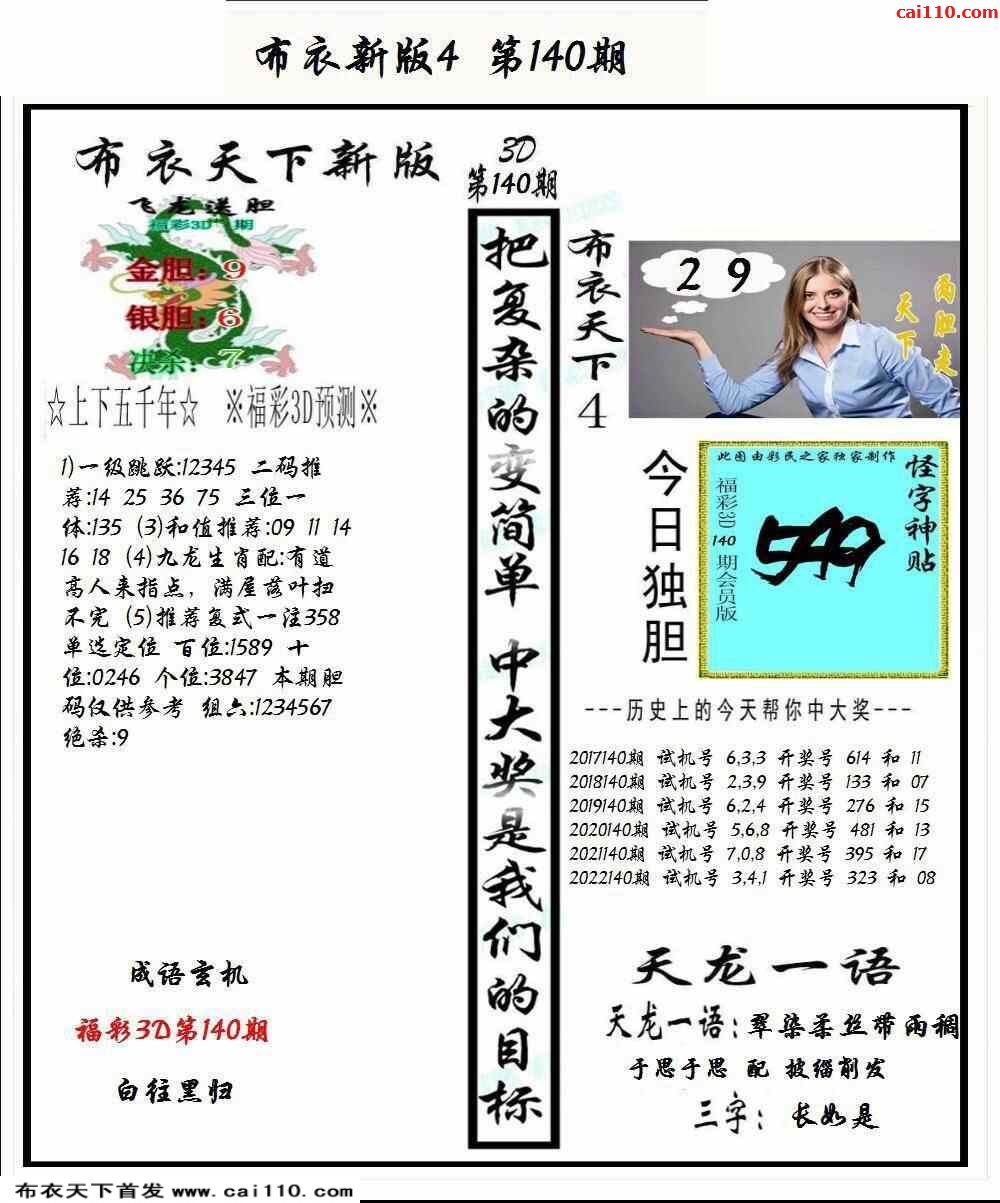 cai110.com
布衣新版4 第140期
布衣天下新版
飞龙送胆
福彩3D 期
金胆：9
银胆：6
决杀：7
☆上下五千年☆ ※福彩3D预测※
1)一级跳跃:12345 二码推
荐:14 25 36 75 三位一
体:135 (3)和值推荐:09 11 14
16 18 (4)九龙生肖配:有道
高人来指点，满屋落叶扫
不完 (5)推荐复式一注358
单选定位 百位:1589 十
位:0246 个位:3847 本期胆
码仅供参考 组六:1234567
绝杀:9
成语玄机
福彩3D第140期
白往黑归
3D
第140期
把复杂的变简单 中大奖是我们的目标
布衣天下4
2 9
两胆走
天下
今日独胆
此图由彩民之家独家制作
怪字神贴
福彩3D 140 期会员版
549
---历史上的今天帮你中大奖---
2017140期 试机号 6,3,3 开奖号 614 和 11
2018140期 试机号 2,3,9 开奖号 133 和 07
2019140期 试机号 6,2,4 开奖号 276 和 15
2020140期 试机号 5,6,8 开奖号 481 和 13
2021140期 试机号 7,0,8 开奖号 395 和 17
2022140期 试机号 3,4,1 开奖号 323 和 08
天龙一语
天龙一语：翠染柔丝带雨稠
于思于思 配 披缁削发
三字： 长如是
布衣天下首发 www.cai110.com